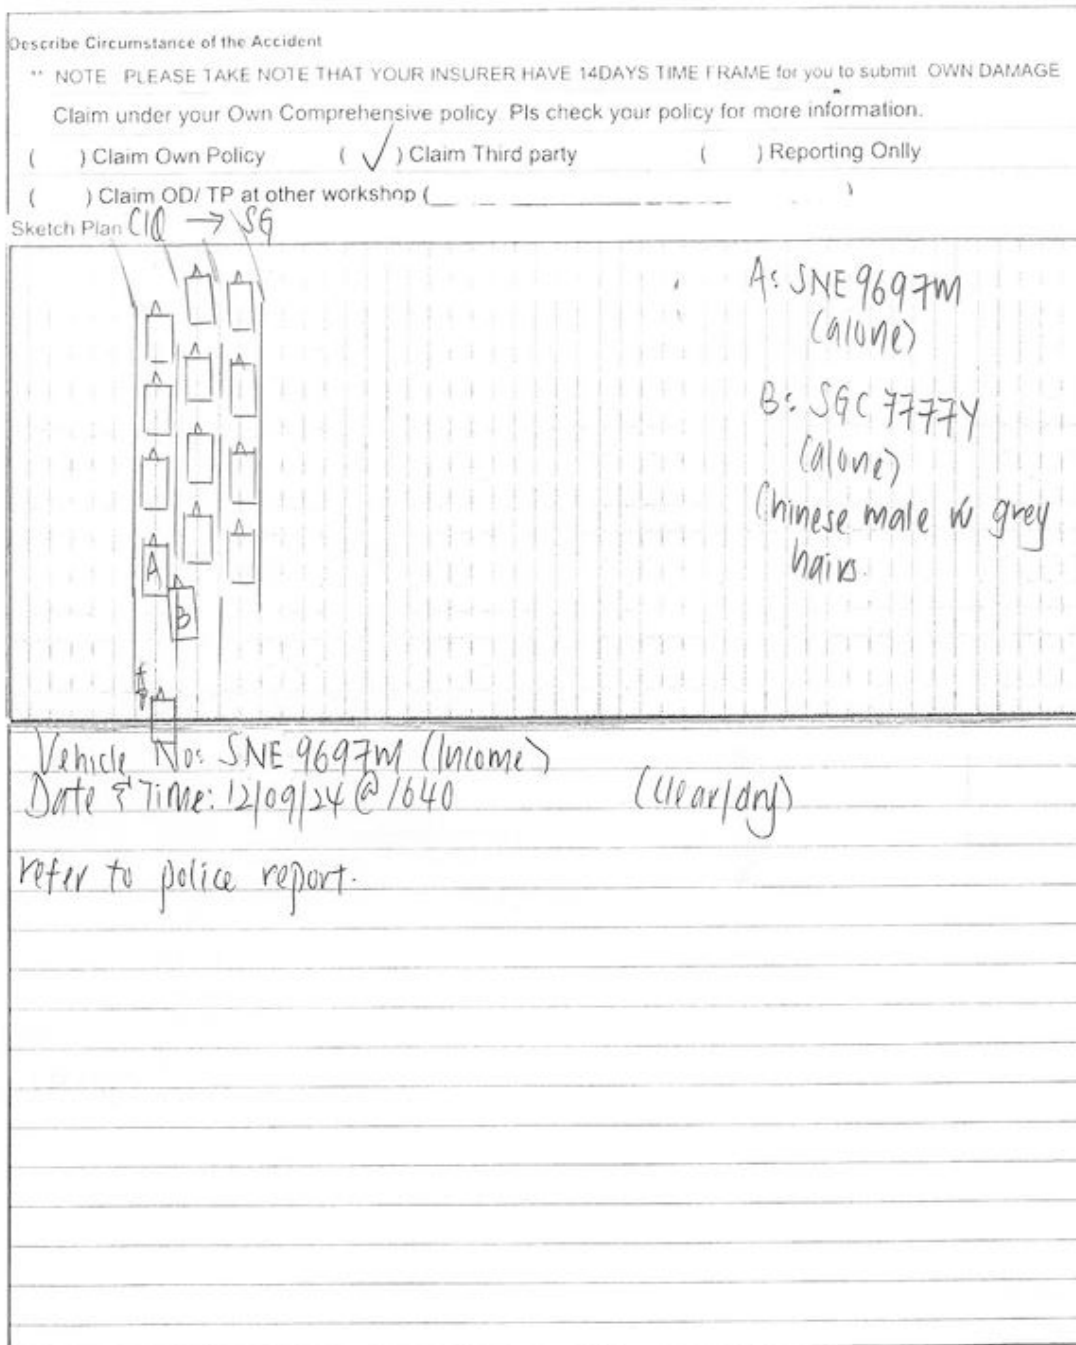 Describe Circumstance of the Accident
** NOTE PLEASE TAKE NOTE THAT YOUR INSURER HAVE 14DAYS TIME FRAME for you to submit OWN DAMAGE
Claim under your Own Comprehensive policy. Pls check your policy for more information.
( ) Claim Own Policy ( ✓ ) Claim Third party ( ) Reporting Onlly
( ) Claim OD/ TP at other workshop ( )
Sketch Plan CIQ → SG
A: SNE 9697M
(alone)
B: SGC 7777Y
(alone)
Chinese male w grey
hairs.
A
B
Vehicle No: SNE 9697M (Income)
Date & Time: 12/09/24 @ 1640 (clear/dry)
refer to police report.